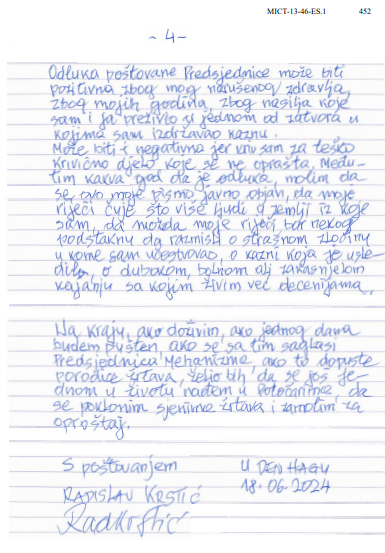 MICT-13-46-ES.1 452
~ 4 ~
Odluka poštovane Predsjednice može biti
pozitivna zbog mog narušenog zdravlja,
zbog mojih godina, zbog nasilja koje
sam i ja preživio u jednom od zatvora u
kojima sam izdržavao kaznu.
Može biti i negativna jer kriv sam za teško
krivično djelo koje se ne oprašta. Među-
tim kakva god da je odluka, molim da
se ovo moje pismo javno objavi, da moje
riječi čuje što više ljudi u zemlji iz koje
sam, da možda moje riječi bar nekog
podstaknu da razmisli o strašnom zločinu
u kome sam učestvovao, o kazni koja je usle-
dila, o dubokom, bolnom ali zakasnjelom
kajanju sa kojim živim već decenijama.
Na kraju, ako doživim, ako jednog dana
budem pušten, ako se sa tim saglasi
Predsjednica Mehanizma, ako to dopuste
porodice žrtava, želio bih da se još je-
dnom u životu nađem u Potočarima, da
se poklonim sjenima žrtava i zamolim za
oproštaj.
S poštovanjem U DEN HAGU
RADISLAV KRSTIĆ 18.06.2024
Rad Krstić